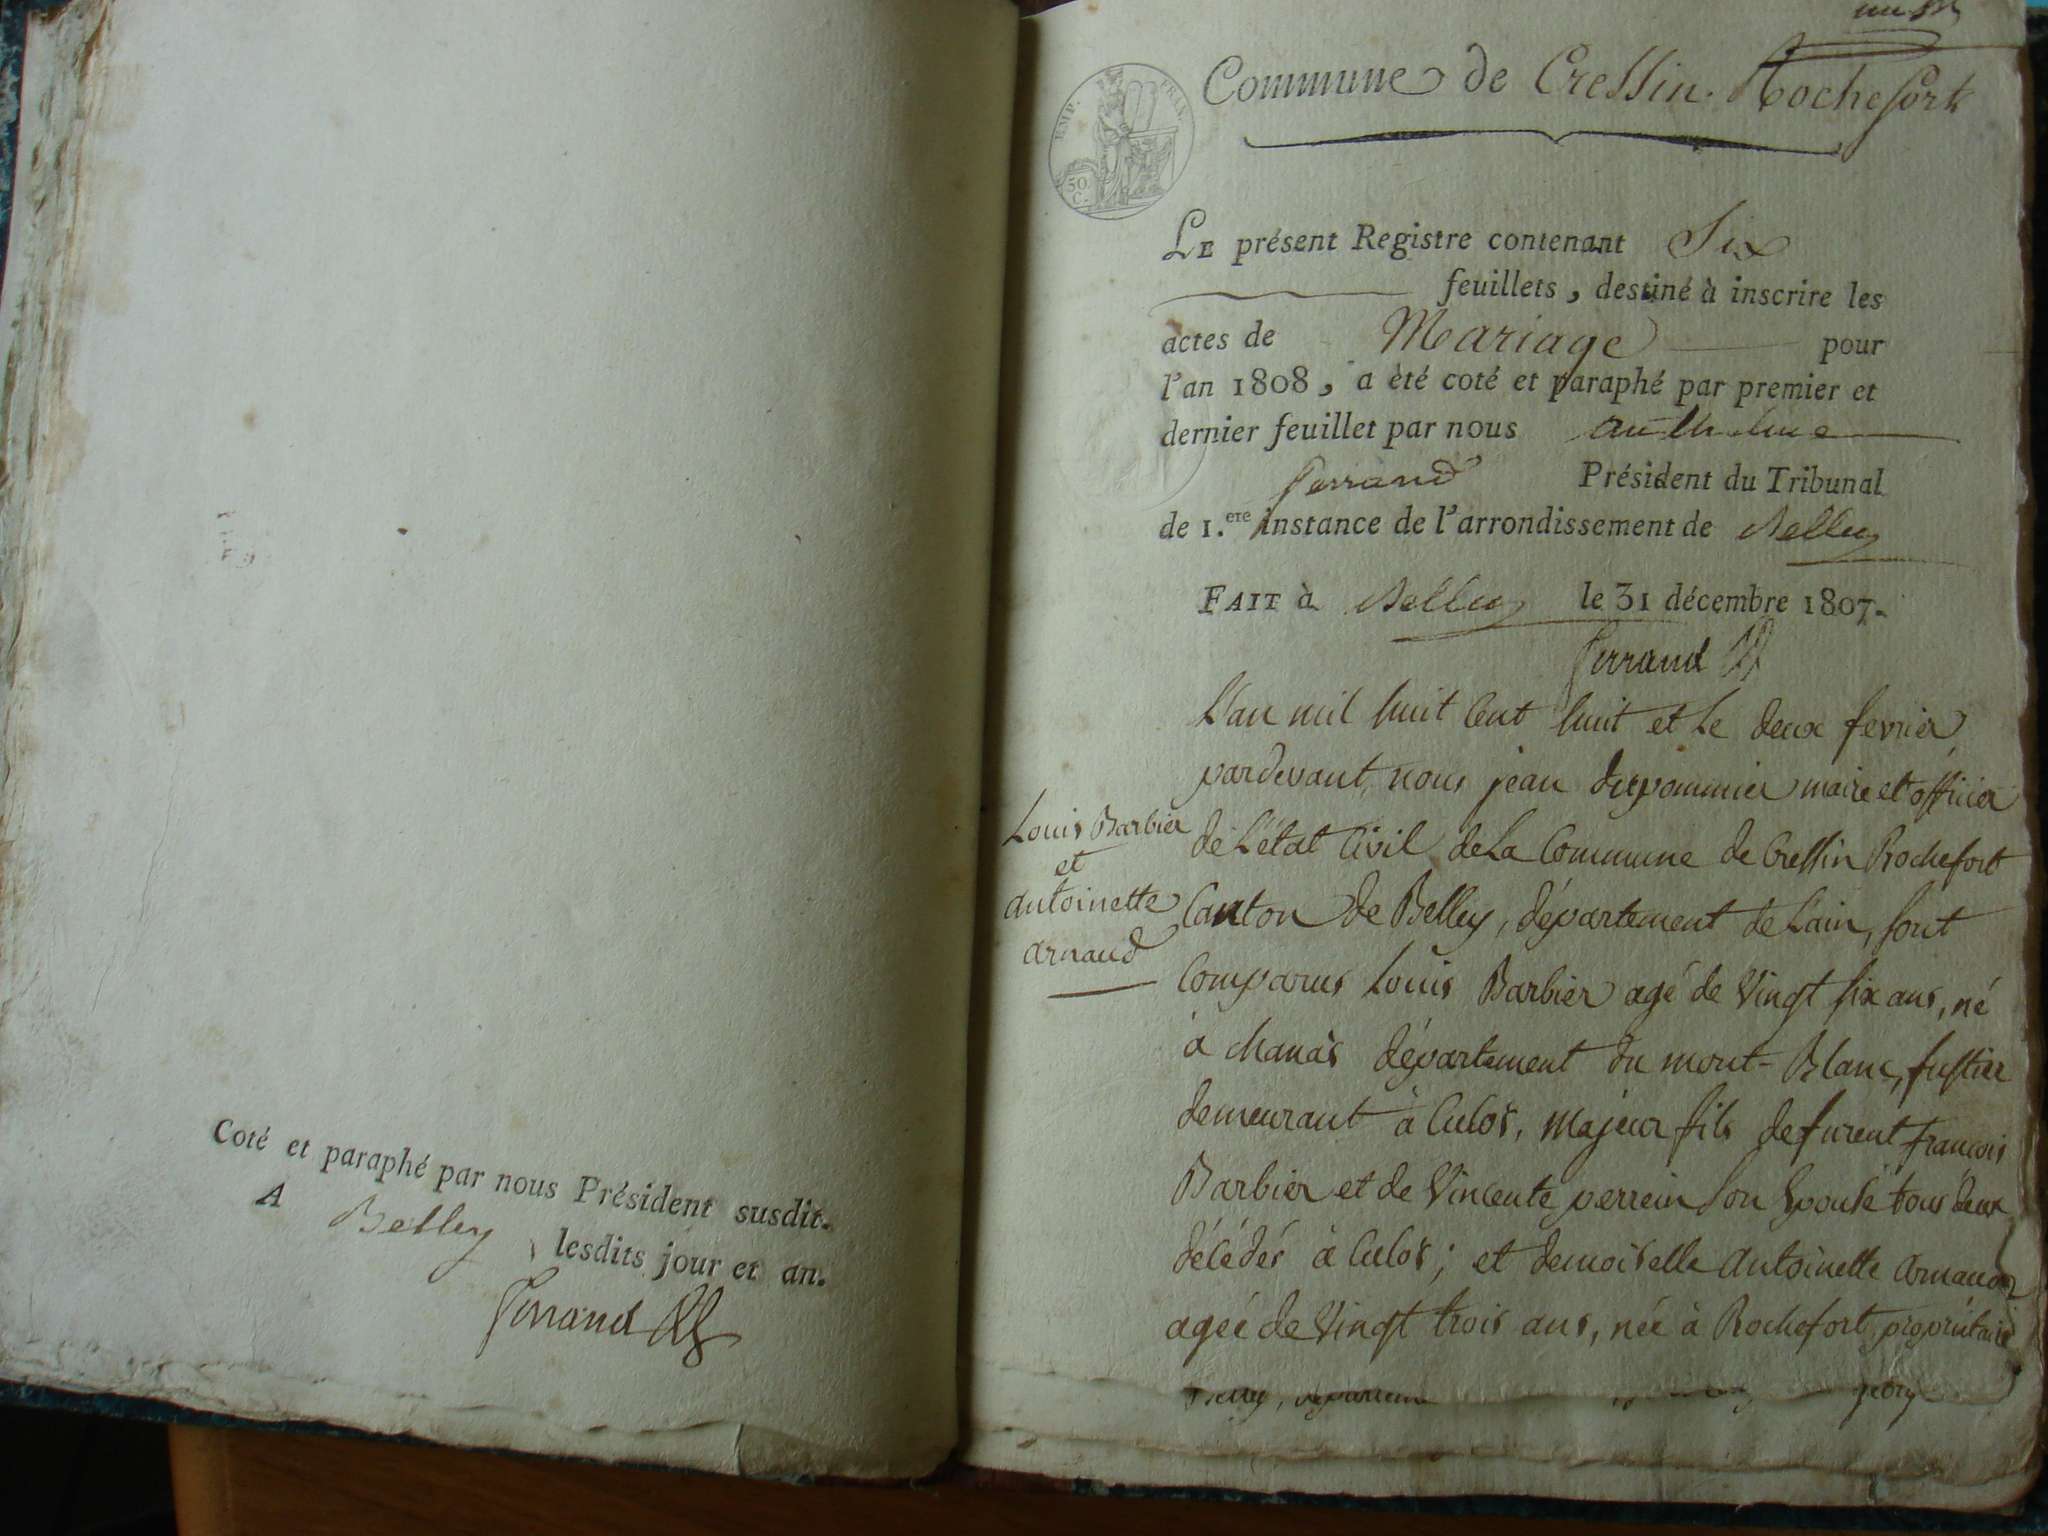 Coté et paraphé par nous Président susdit.
A Belley, lesdits jour et an.
Ferrand
Commune de Cressin-Rochefort
EMP. FRAN.
50 C.
LE présent Registre contenant Six
feuillets, destiné à inscrire les
actes de Mariage pour
l'an 1808, a été coté et paraphé par premier et
dernier feuillet par nous anthelme
ferrand Président du Tribunal
de 1.ere instance de l'arrondissement de Belley
FAIT à Belley le 31 décembre 1807.
Ferrand
L'an mil huit Cent huit et Le deux fevrier
pardevant nous jean dupommier maire et officier
de L'état Civil de La Commune de Cressin Rochefort
Canton de Belley, département de L'ain, sont
Comparus Louis Barbier agé de Vingt six ans, né
à Chanas département du mont-Blanc, fustier
demeurant à Culos, majeur fils de furent françois
Barbier et de Vincente perrein son Epouse tous deux
décédés à Culos; et demoiselle antoinette arnaud
agée de Vingt trois ans, née à Rochefort, propriétaire
Louis Barbier
et
antoinette
arnaud